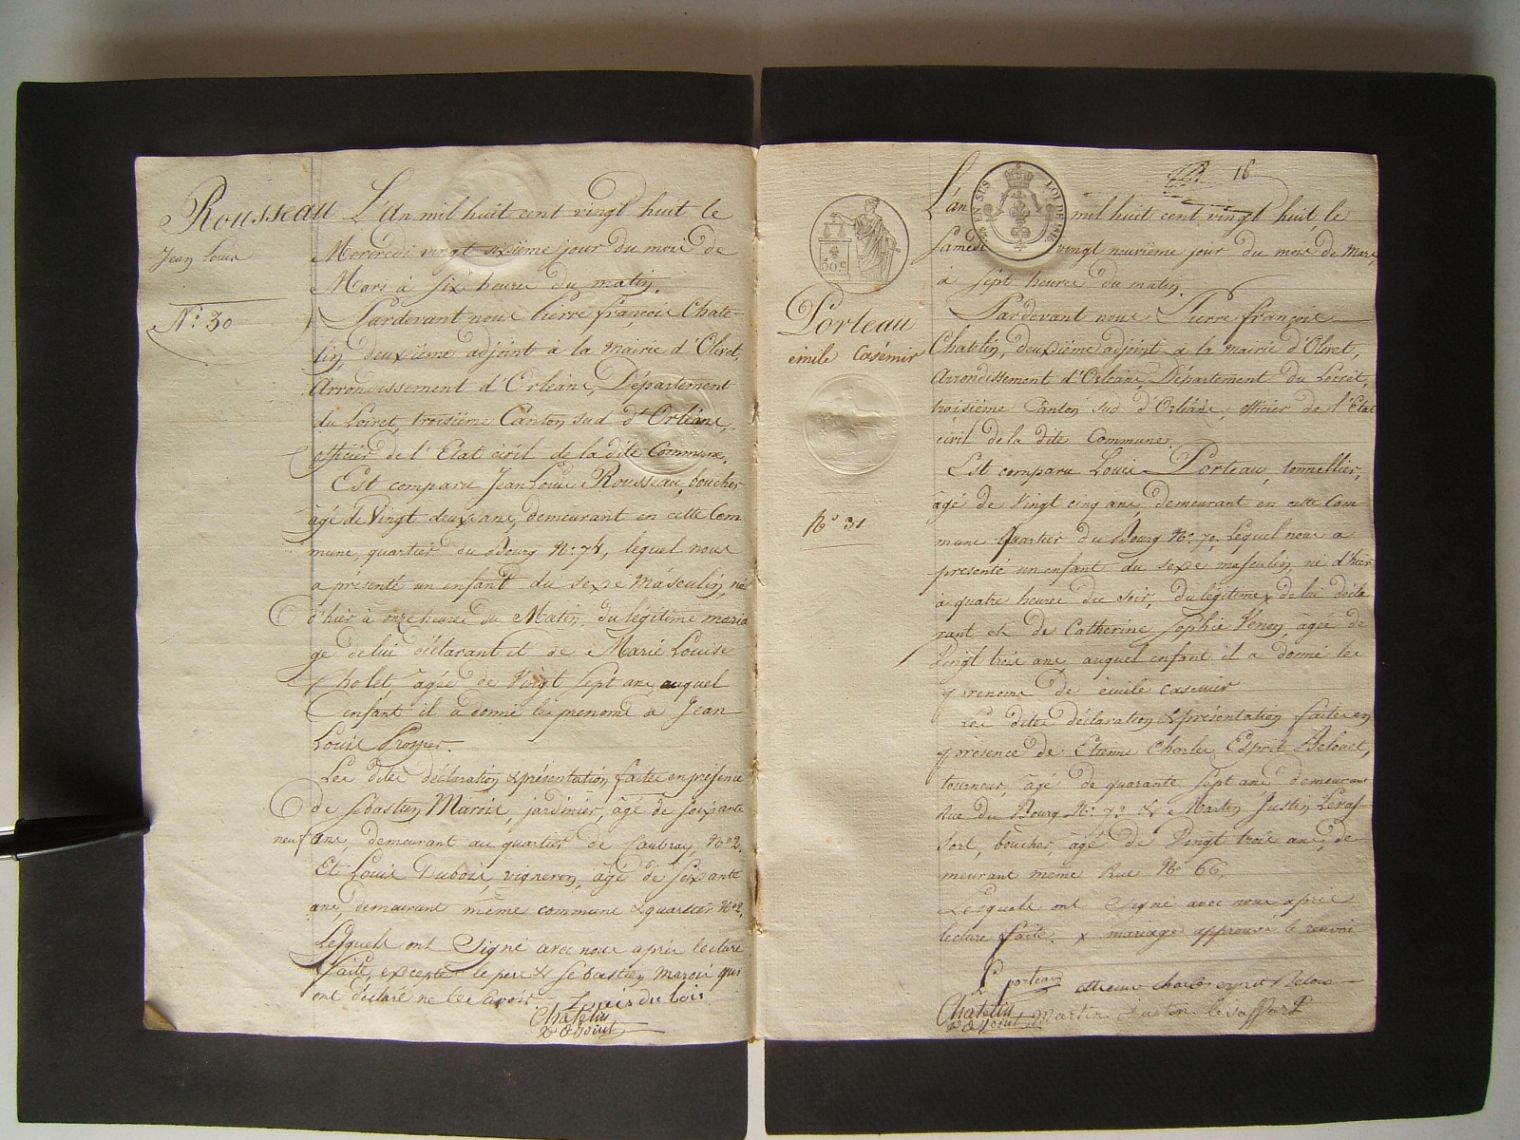 Rousseau
Jean Louis
N.° 30
L'An mil huit cent vingt huit le
Mercredi vingt sixième jour du mois de
Mars à six heures du matin.
Pardevant nous Pierre françois Chate-
lin, deuxième adjoint à la mairie d'Olivet,
Arrondissement d'Orléans, Département
du Loiret, troisième Canton sud d'Orléans,
officier de l'Etat civil de la dite Commune.
Est comparu Jean Louis Rousseau, boucher
âgé de Vingt deux ans, demeurant en cette Com
mune, quartier du Bourg N.° 74, lequel nous
a présenté un enfant du sexe Masculin, né
d'hier à onze heures du Matin, du légitime maria
ge de lui déclarant et de Marie Louise
Cholet, âgée de Vingt sept ans, auquel
enfant il a donné les prenoms de Jean
Louis Prosper.
Les dites déclaration & présentation faites en présence
de Sébastien Marois, jardinier, âgé de soixante
neuf ans, demeurant au quartier de Caubray N° 2.
Et Louis Dubois, vigneron, âgé de soixante
ans, demeurant même commune & quartier N° 2,
Lesquels ont Signé avec nous après lecture
faite, excepté le pere & Sébastien Marois qui
ont déclaré ne le savoir. Louis du bois
Chatelin
D. Adjoint
18
EN SUS
LOI DE 1816
50 c
Porteau
émile Casémir
N° 31
L'an mil huit cent vingt huit, le
Samedi vingt neuvième jour du mois de Mars,
à sept heures du matin.
Pardevant nous Pierre françois
Chatelin, deuxième adjoint à la mairie d'Olivet,
Arrondissement d'Orléans, Département du Loiret,
troisième Canton sud d'Orléans officier de l'Etat
civil de la dite Commune.
Est comparu Louis Porteau, tonnellier,
âgé de Vingt cinq ans, demeurant en cette Com
mune Quartier du Bourg N° 70, Lequel nous a
présenté un enfant du sexe masculin, né d'hier
à quatre heures du soir, du légitime x de lui décla
rant et de Catherine Sophie Venon, âgée de
Vingt trois ans, auquel enfant il a donné les
prenoms de émile casemir
Les dites déclaration & présentation faites en
présence de Etienne Charles Esprit Belouet,
tourneur, âgé de quarante sept ans demeurant
Rue du Bourg N.° 73 & Martin Justin Levas
sort, boucher, âgé de Vingt trois ans, de
meurant même Rue N° 66,
Lesquels ont Signé avec nous après
lecture faite. x mariage approuvé le renvoi
L porteau
Chatelin
D. Adjoint
Martin Justin